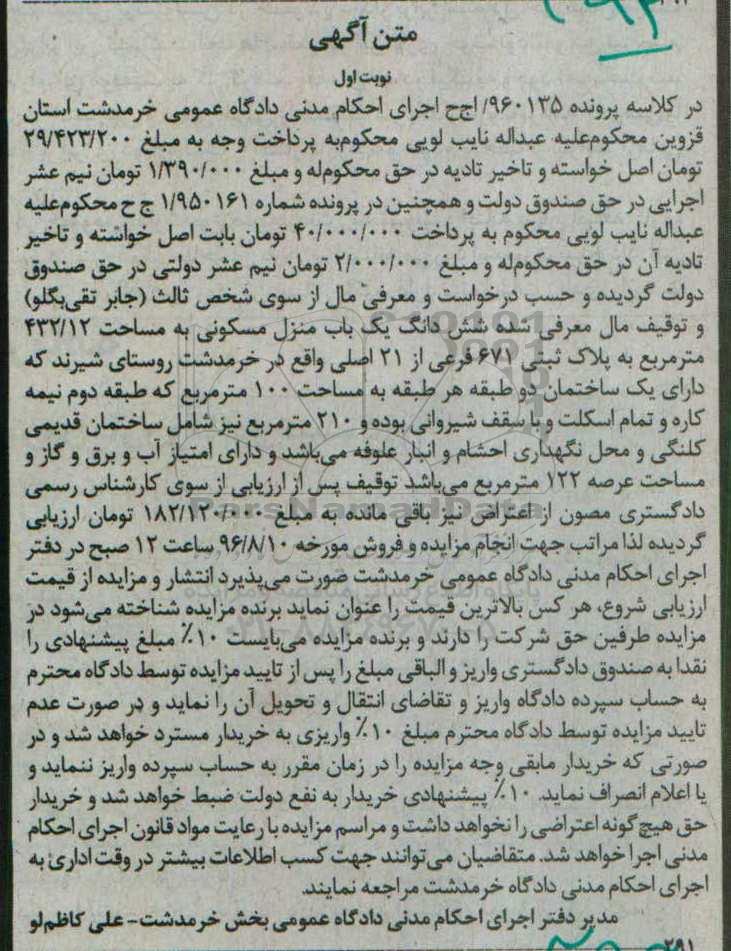 متن آگهی
نوبت اول
در کلاسه پرونده ۹۶۰۱۳۵/ اجح اجرای احکام مدنی دادگاه عمومی خرمدشت استان
قزوین محکوم‌علیه عبداله نایب لویی محکوم‌به پرداخت وجه به مبلغ ۲۹/۴۲۳/۲۰۰
تومان اصل خواسته و تاخیر تادیه در حق محکوم‌له و مبلغ ۱/۳۹۰/۰۰۰ تومان نیم عشر
اجرایی در حق صندوق دولت و همچنین در پرونده شماره ۱/۹۵۰۱۶۱ ج ح محکوم‌علیه
عبداله نایب لویی محکوم به پرداخت ۴۰/۰۰۰/۰۰۰ تومان بابت اصل خواسته و تاخیر
تادیه آن در حق محکوم‌له و مبلغ ۲/۰۰۰/۰۰۰ تومان نیم عشر دولتی در حق صندوق
دولت گردیده و حسب درخواست و معرفی مال از سوی شخص ثالث (جابر تقی‌بگلو)
و توقیف مال معرفی شده شش دانگ یک باب منزل مسکونی به مساحت ۴۳۲/۱۲
مترمربع به پلاک ثبتی ۶۷۱ فرعی از ۲۱ اصلی واقع در خرمدشت روستای شیرند که
دارای یک ساختمان دو طبقه هر طبقه به مساحت ۱۰۰ مترمربع که طبقه دوم نیمه
کاره و تمام اسکلت و با سقف شیروانی بوده و ۲۱۰ مترمربع نیز شامل ساختمان قدیمی
کلنگی و محل نگهداری احشام و انبار علوفه می‌باشد و دارای امتیاز آب و برق و گاز و
مساحت عرصه ۱۲۲ مترمربع می‌باشد توقیف پس از ارزیابی از سوی کارشناس رسمی
دادگستری مصون از اعتراض نیز باقی مانده به مبلغ ۱۸۲/۱۲۰/۰۰۰ تومان ارزیابی
گردیده لذا مراتب جهت انجام مزایده و فروش مورخه ۹۶/۸/۱۰ ساعت ۱۲ صبح در دفتر
اجرای احکام مدنی دادگاه عمومی خرمدشت صورت می‌پذیرد انتشار و مزایده از قیمت
ارزیابی شروع، هر کس بالاترین قیمت را عنوان نماید برنده مزایده شناخته می‌شود در
مزایده طرفین حق شرکت را دارند و برنده مزایده می‌بایست ۱۰٪ مبلغ پیشنهادی را
نقدا به صندوق دادگستری واریز و الباقی مبلغ را پس از تایید مزایده توسط دادگاه محترم
به حساب سپرده دادگاه واریز و تقاضای انتقال و تحویل آن را نماید و در صورت عدم
تایید مزایده توسط دادگاه محترم مبلغ ۱۰٪ واریزی به خریدار مسترد خواهد شد و در
صورتی که خریدار مابقی وجه مزایده را در زمان مقرر به حساب سپرده واریز ننماید و
یا اعلام انصراف نماید. ۱۰٪ پیشنهادی خریدار به نفع دولت ضبط خواهد شد و خریدار
حق هیچ گونه اعتراضی را نخواهد داشت و مراسم مزایده با رعایت مواد قانون اجرای احکام
مدنی اجرا خواهد شد. متقاضیان می‌توانند جهت کسب اطلاعات بیشتر در وقت اداری به
اجرای احکام مدنی دادگاه خرمدشت مراجعه نمایند.
مدیر دفتر اجرای احکام مدنی دادگاه عمومی بخش خرمدشت- علی کاظم‌لو